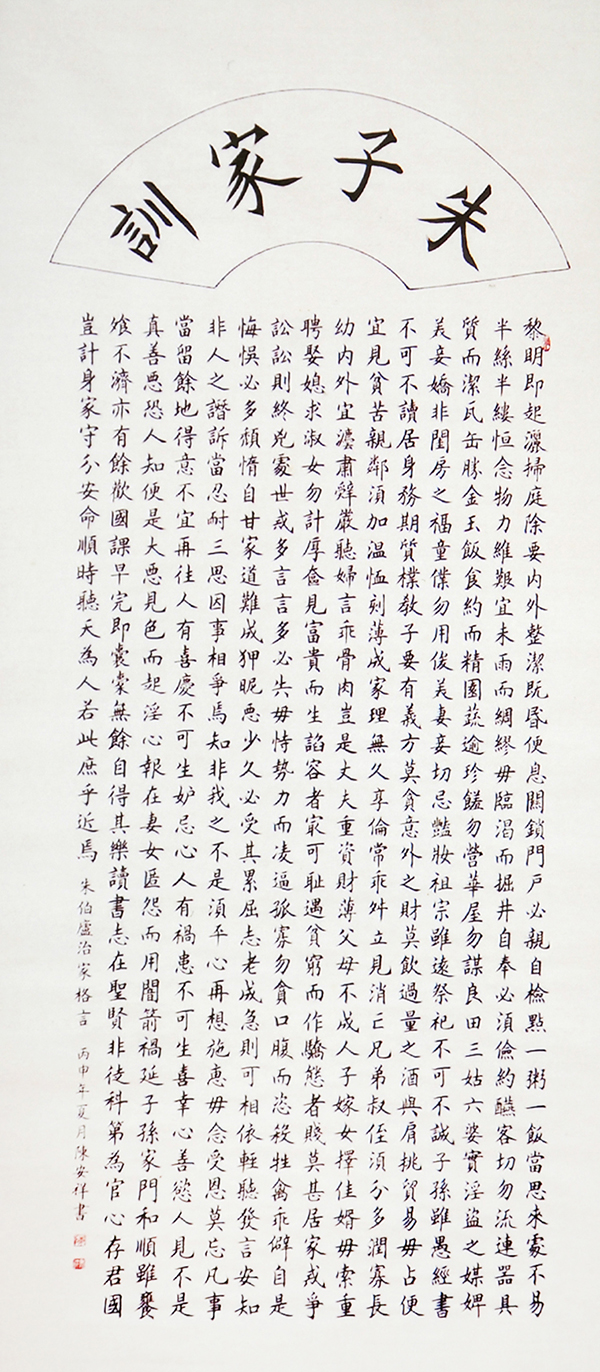 朱子家訓
黎明即起灑掃庭除要内外整潔既昏便息關鎖門戶必親自檢點一粥一飯當思来處不易
半絲半縷恒念物力維艱宜未雨而綢繆毋臨渴而掘井自奉必須儉約醼客切勿流連器具
質而潔瓦缶勝金玉飯食約而精園蔬逾珍饈勿營華屋勿謀良田三姑六婆實淫盜之媒婢
美妾嬌非閨房之福童僕勿用俊美妻妾切忌豔妝祖宗雖遠祭祀不可不誠子孫雖愚經書
不可不讀居身務期質樸教子要有義方莫貪意外之財莫飲過量之酒與肩挑貿易毋占便
宜見貧苦親鄰須加温恤刻薄成家理無久享倫常乖舛立見消亡兄弟叔侄須分多潤寡長
幼内外宜濃肅辭嚴聽婦言乖骨肉豈是丈夫重資財薄父母不成人子嫁女擇佳婿毋索重
聘娶媳求淑女勿計厚奩見富貴而生諂容者最可恥遇貧窮而作驕態者賤莫甚居家戒爭
訟訟則終凶處世戒多言言多必失毋恃勢力而凌逼孤寡勿貪口腹而恣殺牲禽乖僻自是
悔悞必多頹惰自甘家道難成狎昵惡少久必受其累屈志老成急則可相依輕聽發言安知
非人之譖訴當忍耐三思因事相爭焉知非我之不是須平心再想施惠毋念受恩莫忘凡事
當留餘地得意不宜再往人有喜慶不可生妒忌心人有禍患不可生喜幸心善慾人見不是
真善惡恐人知便是大惡見色而起淫心報在妻女匿怨而用闇箭禍延子孫家門和順雖饔
飧不濟亦有餘歡國課早完即囊橐無餘自得其樂讀書志在聖賢非徒科第為官心存君國
豈計身家守分安命順時聽天為人若此庶乎近焉 朱伯廬治家格言 丙申年夏月陳安祥書